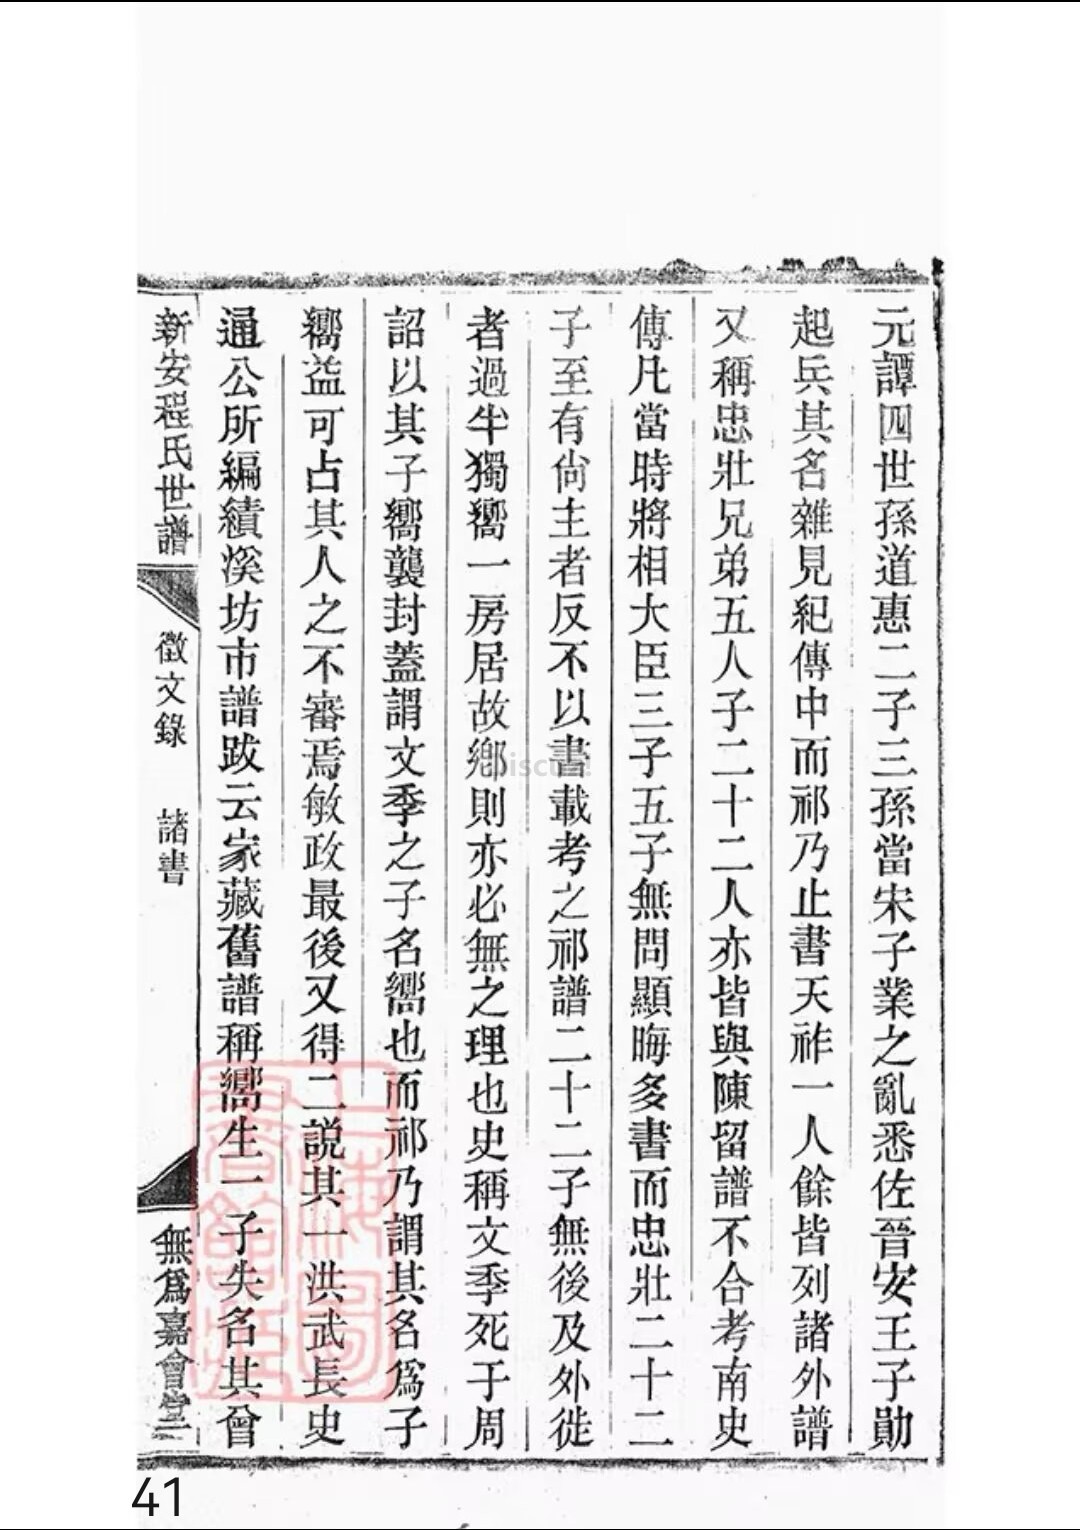 元譚四世孫道惠二子三孫當宋子業之亂悉佐晉安王子勛
起兵其名雜見紀傳中而祁乃止書天祚一人餘皆列諸外譜
又稱忠壯兄弟五人子二十二人亦皆與陳留譜不合考南史
傳凡當時將相大臣三子五子無問顯晦多書而忠壯二十二
子至有尙主者反不以書載考之祁譜二十二子無後及外徙
者過半獨嚮一房居故鄉則亦必無之理也史稱文季死于周
詔以其子嚮襲封蓋謂文季之子名嚮也而祁乃謂其名爲子
嚮益可占其人之不審焉敏政最後又得二説其一洪武長史
通公所編績溪坊市譜跋云家藏舊譜稱嚮生一子失名其曾
新安程氏世譜 徵文錄 諸書 無爲嘉會堂
41